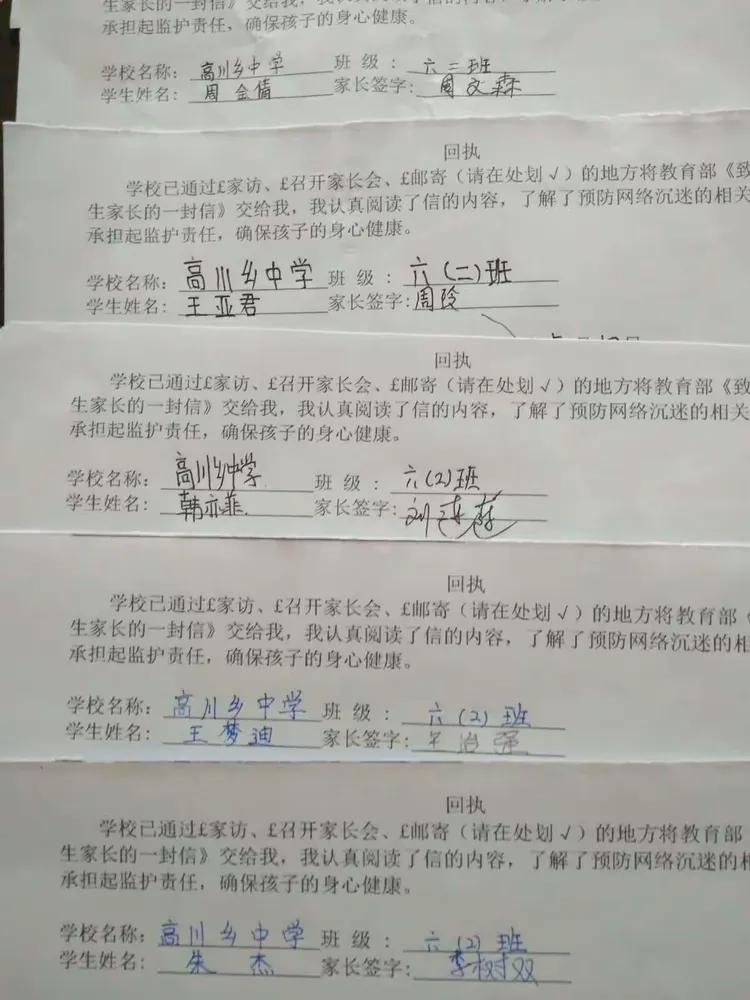 生家长的一封信》交给我，我认真阅读了信的内容，了解了预防网络沉迷的相关
承担起监护责任，确保孩子的身心健康。
学校名称：高川乡中学 班 级 ：六二班
学生姓名：周金倩 家长签字：周文森
回执
学校已通过£家访、£召开家长会、£邮寄（请在处划√）的地方将教育部《致
生家长的一封信》交给我，我认真阅读了信的内容，了解了预防网络沉迷的相关
承担起监护责任，确保孩子的身心健康。
学校名称：高川乡中学 班 级 ：六(二)班
学生姓名：王亚君 家长签字：周玲
回执
学校已通过£家访、£召开家长会、£邮寄（请在处划√）的地方将教育部《致
生家长的一封信》交给我，我认真阅读了信的内容，了解了预防网络沉迷的相关
承担起监护责任，确保孩子的身心健康。
学校名称：高川乡中学 班 级 ：六(2)班
学生姓名：韩亦菲 家长签字：刘
回执
学校已通过£家访、£召开家长会、£邮寄（请在处划√）的地方将教育部《
生家长的一封信》交给我，我认真阅读了信的内容，了解了预防网络沉迷的相
承担起监护责任，确保孩子的身心健康。
学校名称：高川乡中学 班 级 ：六(2)班
学生姓名：王梦迪 家长签字：王治强
回执
学校已通过£家访、£召开家长会、£邮寄（请在处划√）的地方将教育部
生家长的一封信》交给我，我认真阅读了信的内容，了解了预防网络沉迷的相
承担起监护责任，确保孩子的身心健康。
学校名称：高川乡中学 班 级 ：六(2)班
学生姓名：朱杰 家长签字：李树双